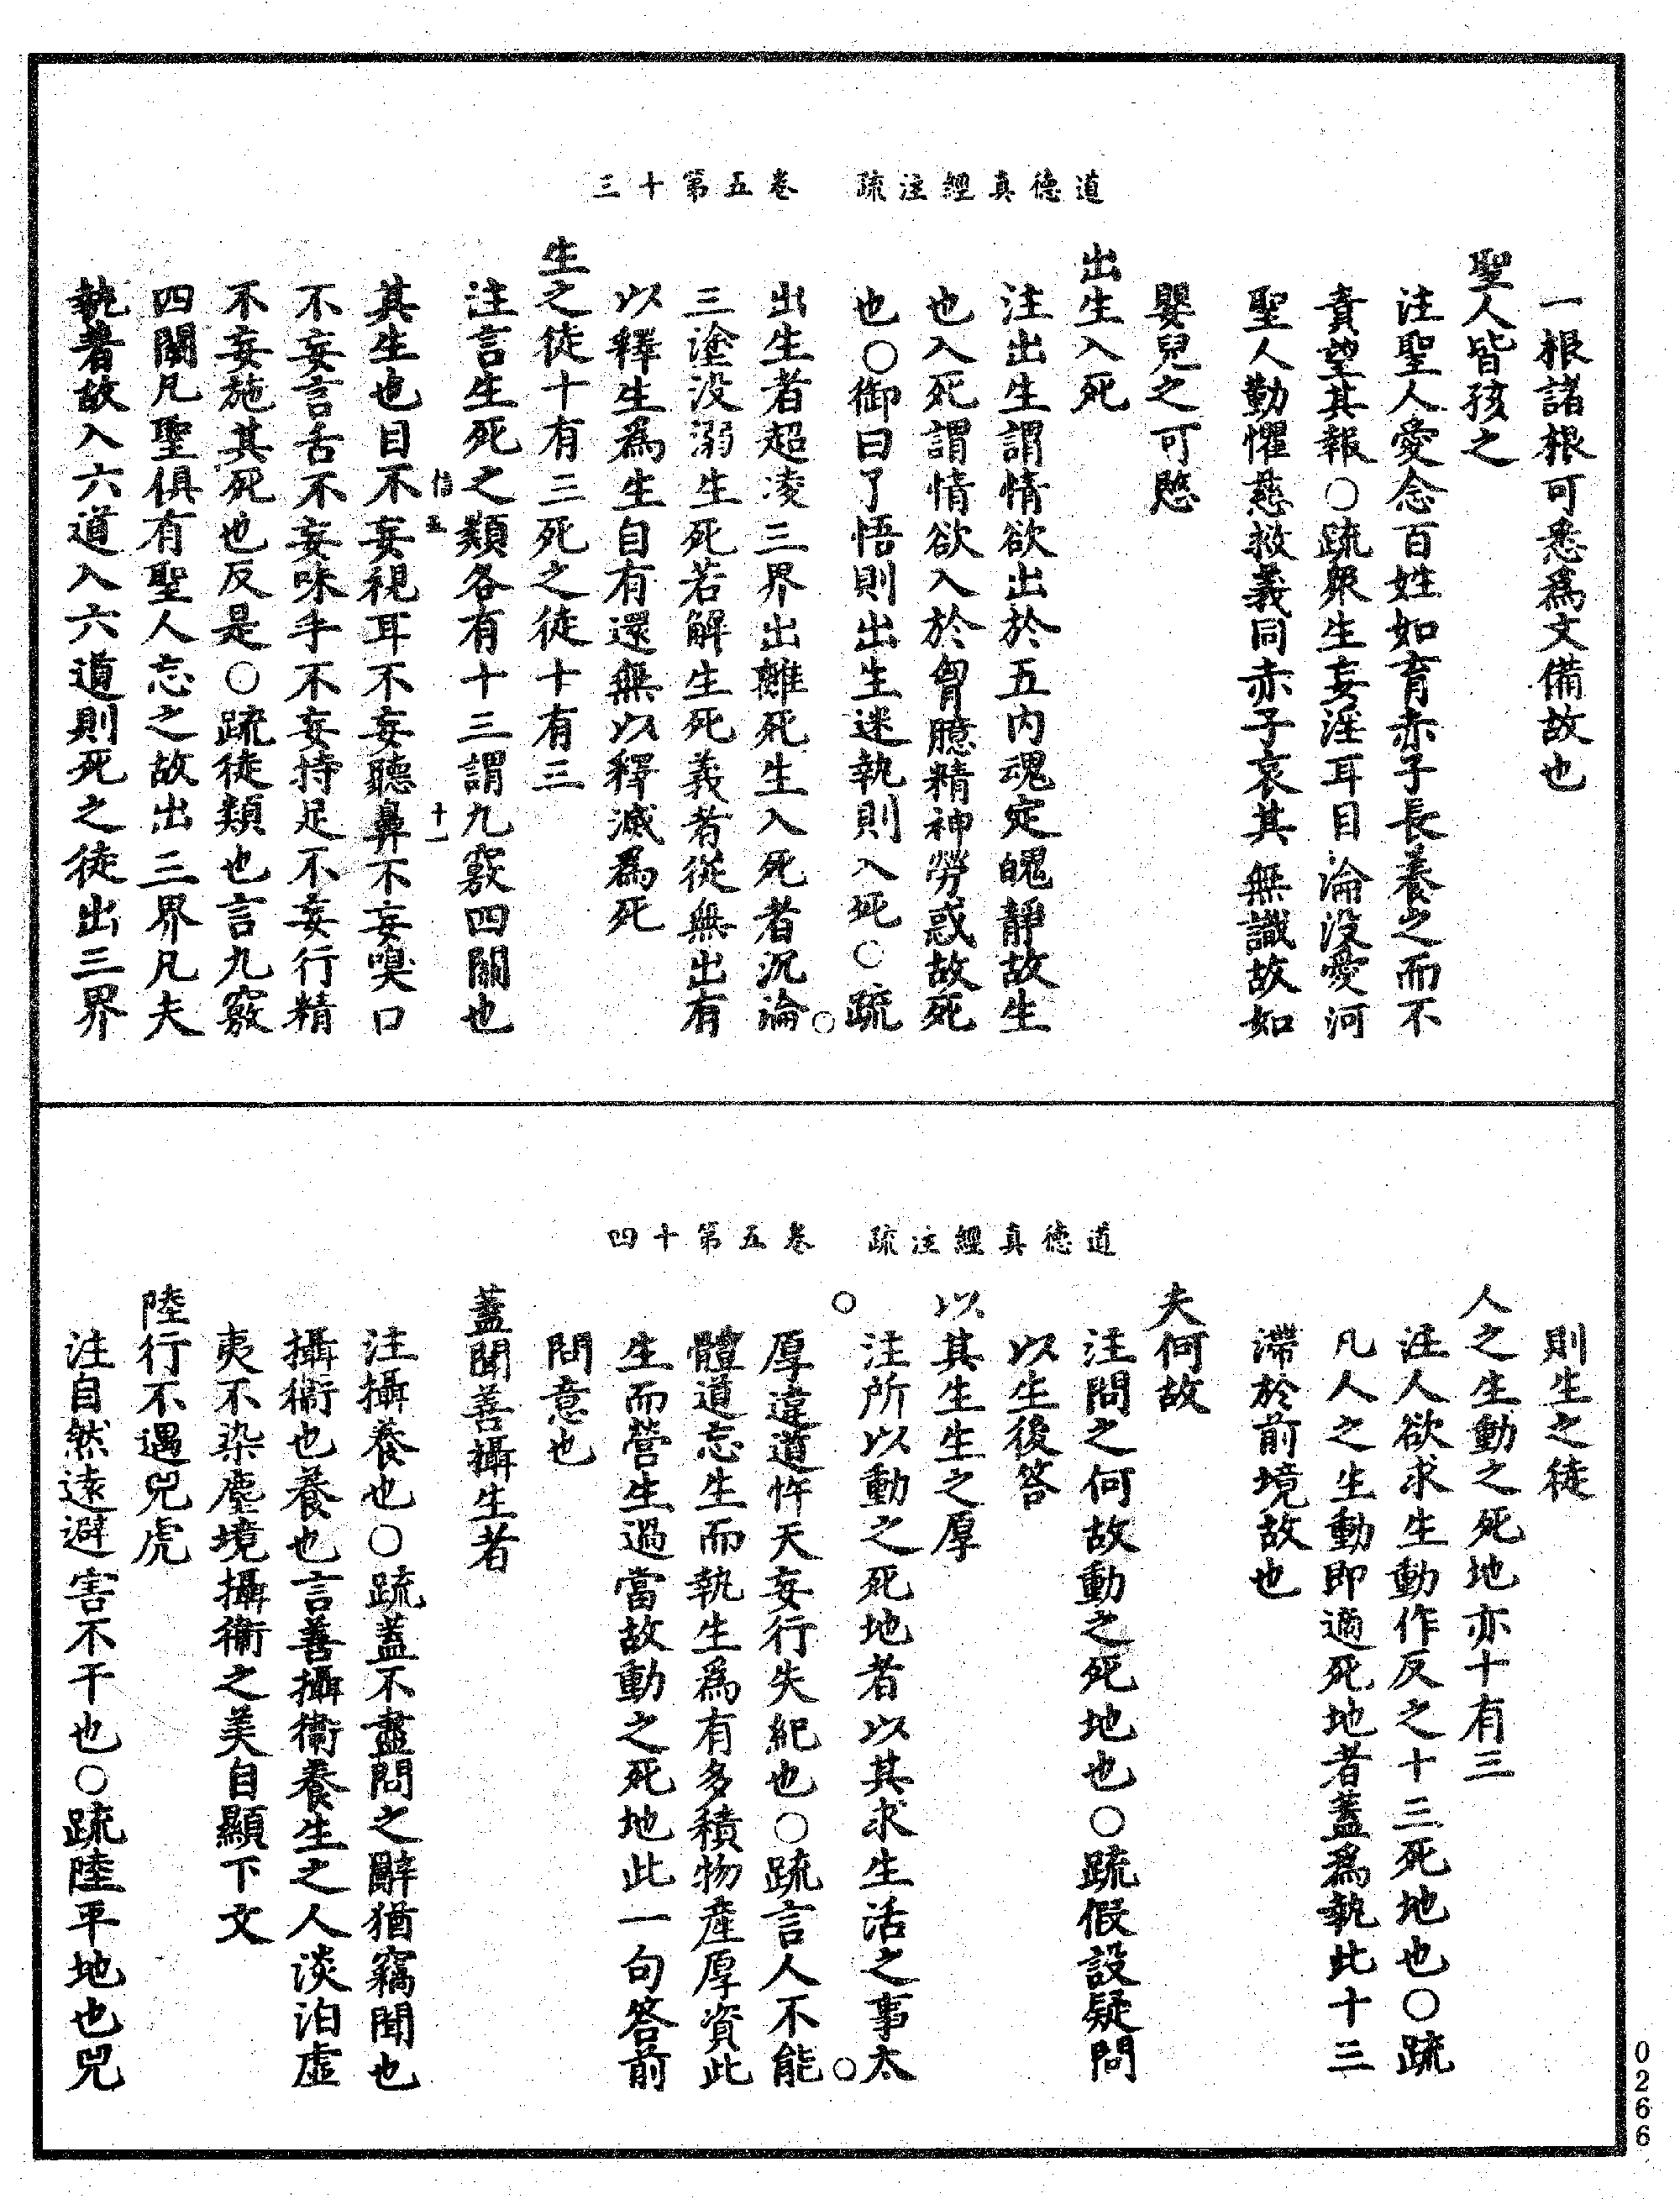 道德真經注疏　卷五第十三
一根諸根可悉爲文備故也
聖人皆孩之
注聖人愛念百姓如育赤子長養之而不
責望其報○疏衆生妄淫耳目淪没愛河
聖人勤懼慈救義同赤子哀其無識故如
嬰兒之可愍
出生入死
注出生謂情欲出於五内魂定魄靜故生
也入死謂情欲入於胷臆精神勞惑故死
也○御曰了悟則出生迷執則入死○疏
出生者超凌三界出離死生入死者沉淪
三塗没溺生死若解生死義者從無出有
以釋生爲生自有還無以釋滅爲死
生之徒十有三死之徒十有三
注言生死之類各有十三謂九竅四關也
十一
其生也目不妄視耳不妄聽鼻不妄嗅口
不妄言舌不妄味手不妄持足不妄行精
不妄施其死也反是○疏徒類也言九竅
四關凡聖俱有聖人忘之故出三界凡夫
執著故入六道入六道則死之徒出三界
道德真經注疏　卷五第十四
則生之徒
人之生動之死地亦十有三
注人欲求生動作反之十三死地也○疏
凡人之生動即適死地者蓋爲執此十三
滯於前境故也
夫何故
注問之何故動之死地也○疏假設疑問
以生後答
以其生生之厚
注所以動之死地者以其求生活之事太
厚違道忤天妄行失紀也○疏言人不能
體道忘生而執生爲有多積物産厚資此
生而營生過當故動之死地此一句答前
問意也
蓋聞善攝生者
注攝養也○疏蓋不盡問之辭猶竊聞也
攝衛也養也言善攝衛養生之人淡泊虛
夷不染塵境攝衛之美自顯下文
陸行不遇兕虎
注自然遠避害不干也○疏陸平地也兕
0266